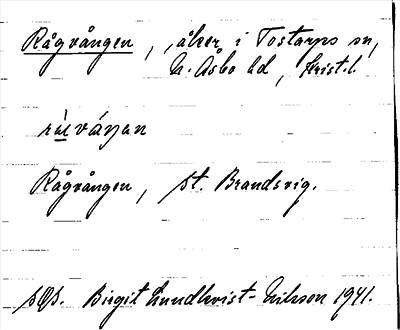 Rågvången, åker i Tostarps sn,
N. Åsbo hd, Krist. l.
Rågvången, st. Brandsvig.
Birgit Lundkvist-Nilsson 1941.